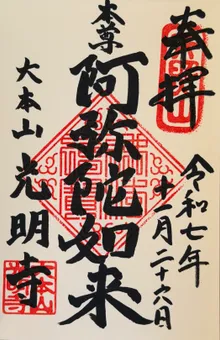 奉拝
令和七年
十月二十六日
本尊
阿弥陀如来
大本山 光明寺